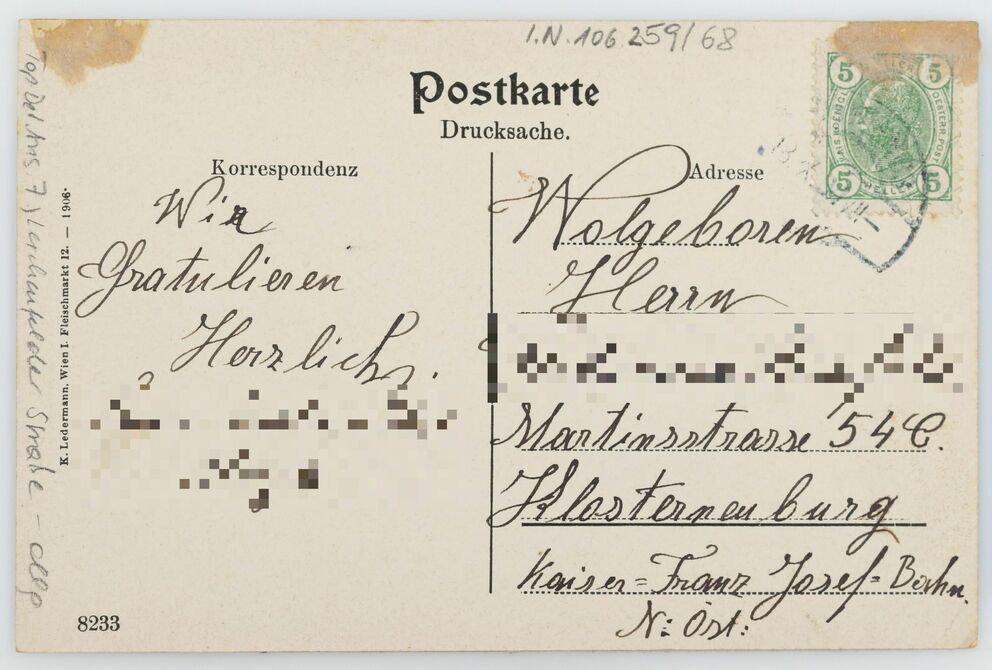 I.N. 106 259/68
Postkarte
Drucksache.
Korrespondenz
Wir
Gratulieren
Herzlich
Adresse
Wolgeboren
Herrn
Martinsstrasse 54 C.
Klosterneuburg
Kaiser=Franz Josef=Bahn.
N: Öst:
5 5
5 5
OESTERR. POST
HELLER
K. Ledermann, Wien I. Fleischmarkt 12. — 1906.
7, Lerchenfelder Straße
8233